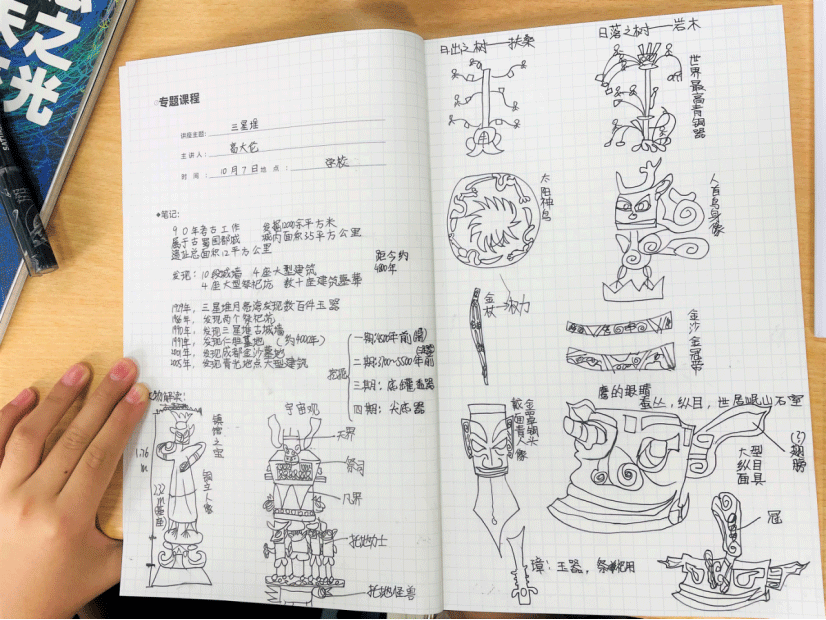 之光
专题课程
讲座主题: 三星堆
主讲人: 高大伦
时间: 10月7日 地点: 学校
•笔记:
90年考古工作 发掘1200余平方米
属于古蜀国都城 城内面积3.5平方公里
遗址总面积12平方公里
距今约
4800年
发现: 10段城墙 4座大型建筑
4座大型祭祀坑 数十座建筑基
1929年, 三星堆月亮湾发现数百件玉器
1986年, 发现两个祭祀坑
1990年, 发现三星堆古城墙
1998年, 发现仁胜墓地 (约4000年)
2001年, 发现成都金沙墓地
2005年, 发现青关地点大型建筑
一期:4800年前
二期:3700~3500年前
三期: 底罐
四期: 尖底器
文物解读:
镇馆之宝
铜立人像
1.76
m
宇宙观
天界
祭司
人界
托地力士
托地怪兽
日出之树——扶桑
日落之树——若木
世界最高青铜器
太阳神鸟
人首鸟身像
金杖→权力
金沙金冠带
戴金面罩青铜人头像
璋: 玉器, 祭祀用
鹰的眼睛
蚕丛, 纵目, 世居岷山石室
(?)翅膀
大型纵目面具
冠